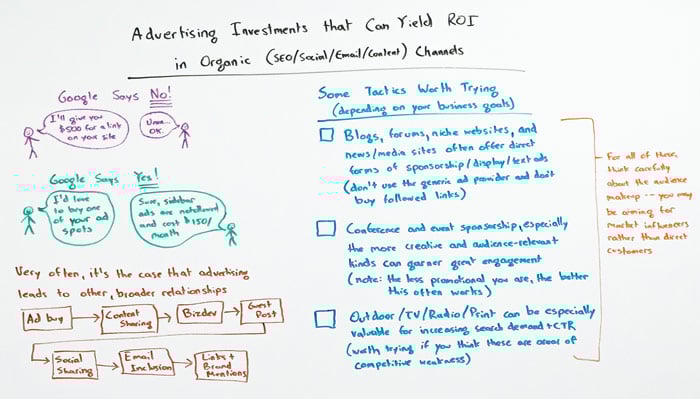 Advertising Investments that Can Yield ROI
in Organic (SEO/Social/Email/Content) Channels
Google Says No!
I'll give you
$500 for a link
on your site
Umm...
OK.
Google Says Yes!
I'd love
to buy one
of your ad
spots
Sure, sidebar
ads are nofollowed
and cost $150/
month
Very often, it's the case that advertising
leads to other, broader relationships
Ad buy
Content
Sharing
Bizdev
Guest
Post
Social
Sharing
Email
Inclusion
Links +
Brand
Mentions
Some Tactics Worth Trying
(depending on your business goals)
Blogs, forums, niche websites, and
news/media sites often offer direct
forms of sponsorship/display/text ads
(don't use the generic ad provider and don't
buy followed links)
Conference and event sponsorship, especially
the more creative and audience-relevant
kinds can garner great engagement
(note: the less promotional you are, the better
this often works)
Outdoor/TV/Radio/Print can be especially
valuable for increasing search demand + CTR
(worth trying if you think these are areas of
competitive weakness)
For all of these,
think carefully
about the audience
makeup -- you may
be aiming for
market influencers
rather than direct
customers